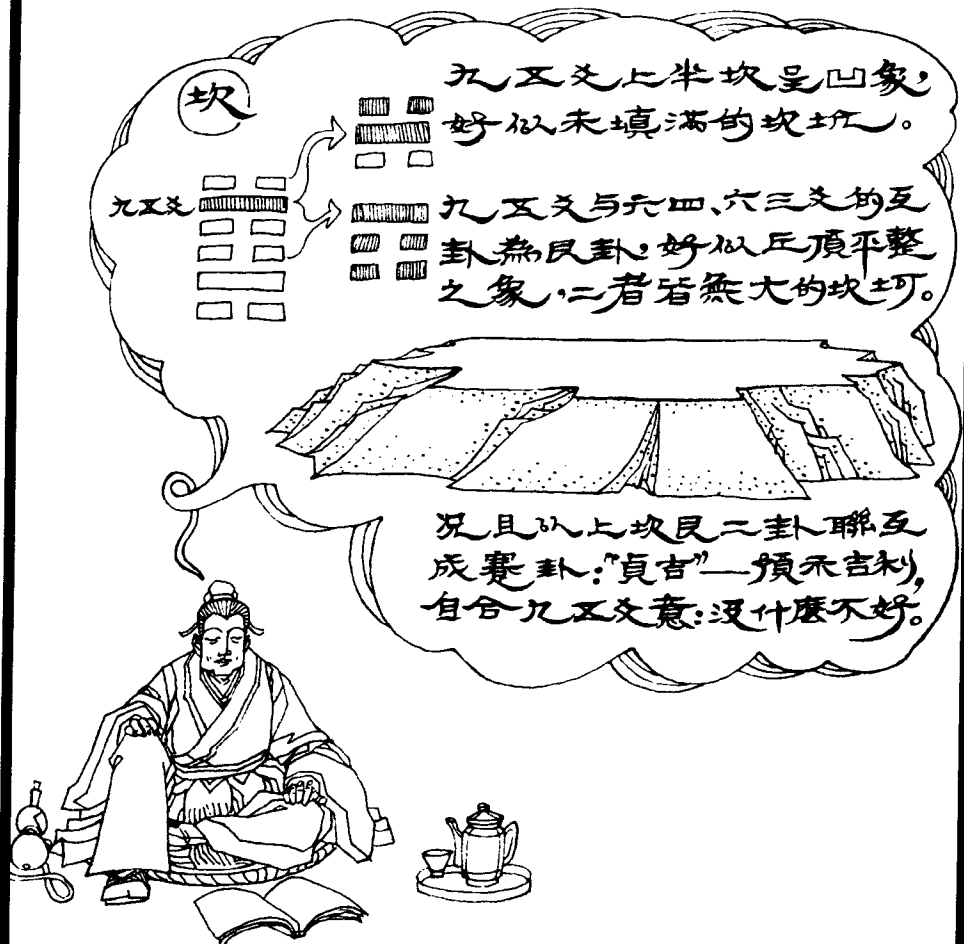 坎
九五爻上半坎呈凹象，
好似未填滿的坎坵。
九五爻
九五爻与六四、六三爻的互
卦為艮卦，好似丘頂平整
之象，二者皆無大的坎坷。
况且以上坎艮二卦聯互
成蹇卦：“貞吉”—預示吉利，
自合九五爻意：没什麼不好。